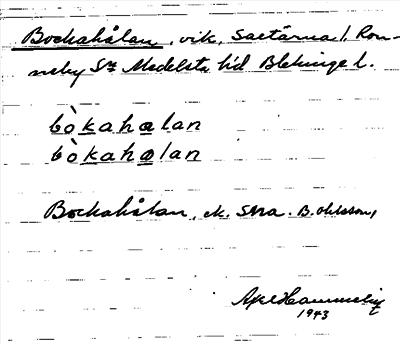 Bockahålan, vik, Saetärna, Ron-
neby Sn Medelsta hd Blekinge l.
bòkahalan
bòkahalan
Bockahålan, ek. Sma. B. Ohlsson,
Axel
1943